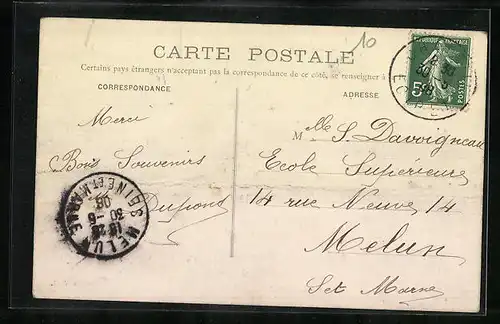 10
CARTE POSTALE
Certains pays étrangers n'acceptant pas la correspondance de ce côté, se renseigner à
CORRESPONDANCE
ADRESSE
Merci
Bons Souvenirs
Dupond
Mlle S. Davoigneau
Ecole Supérieure
14 rue Neuve 14
Melun
Set Marne
MELUN
SEINE ET MARNE
30 -6
08
5
POSTES